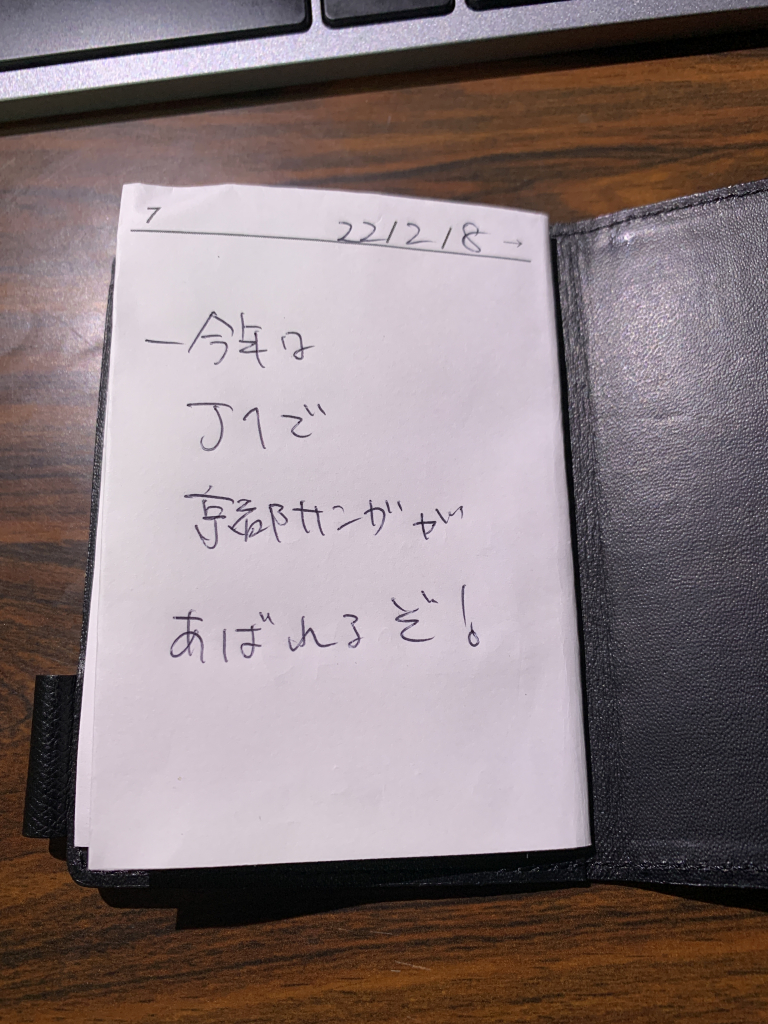 7
221218→
—今年は
J1で
京都サンガが
あばれるぞ!